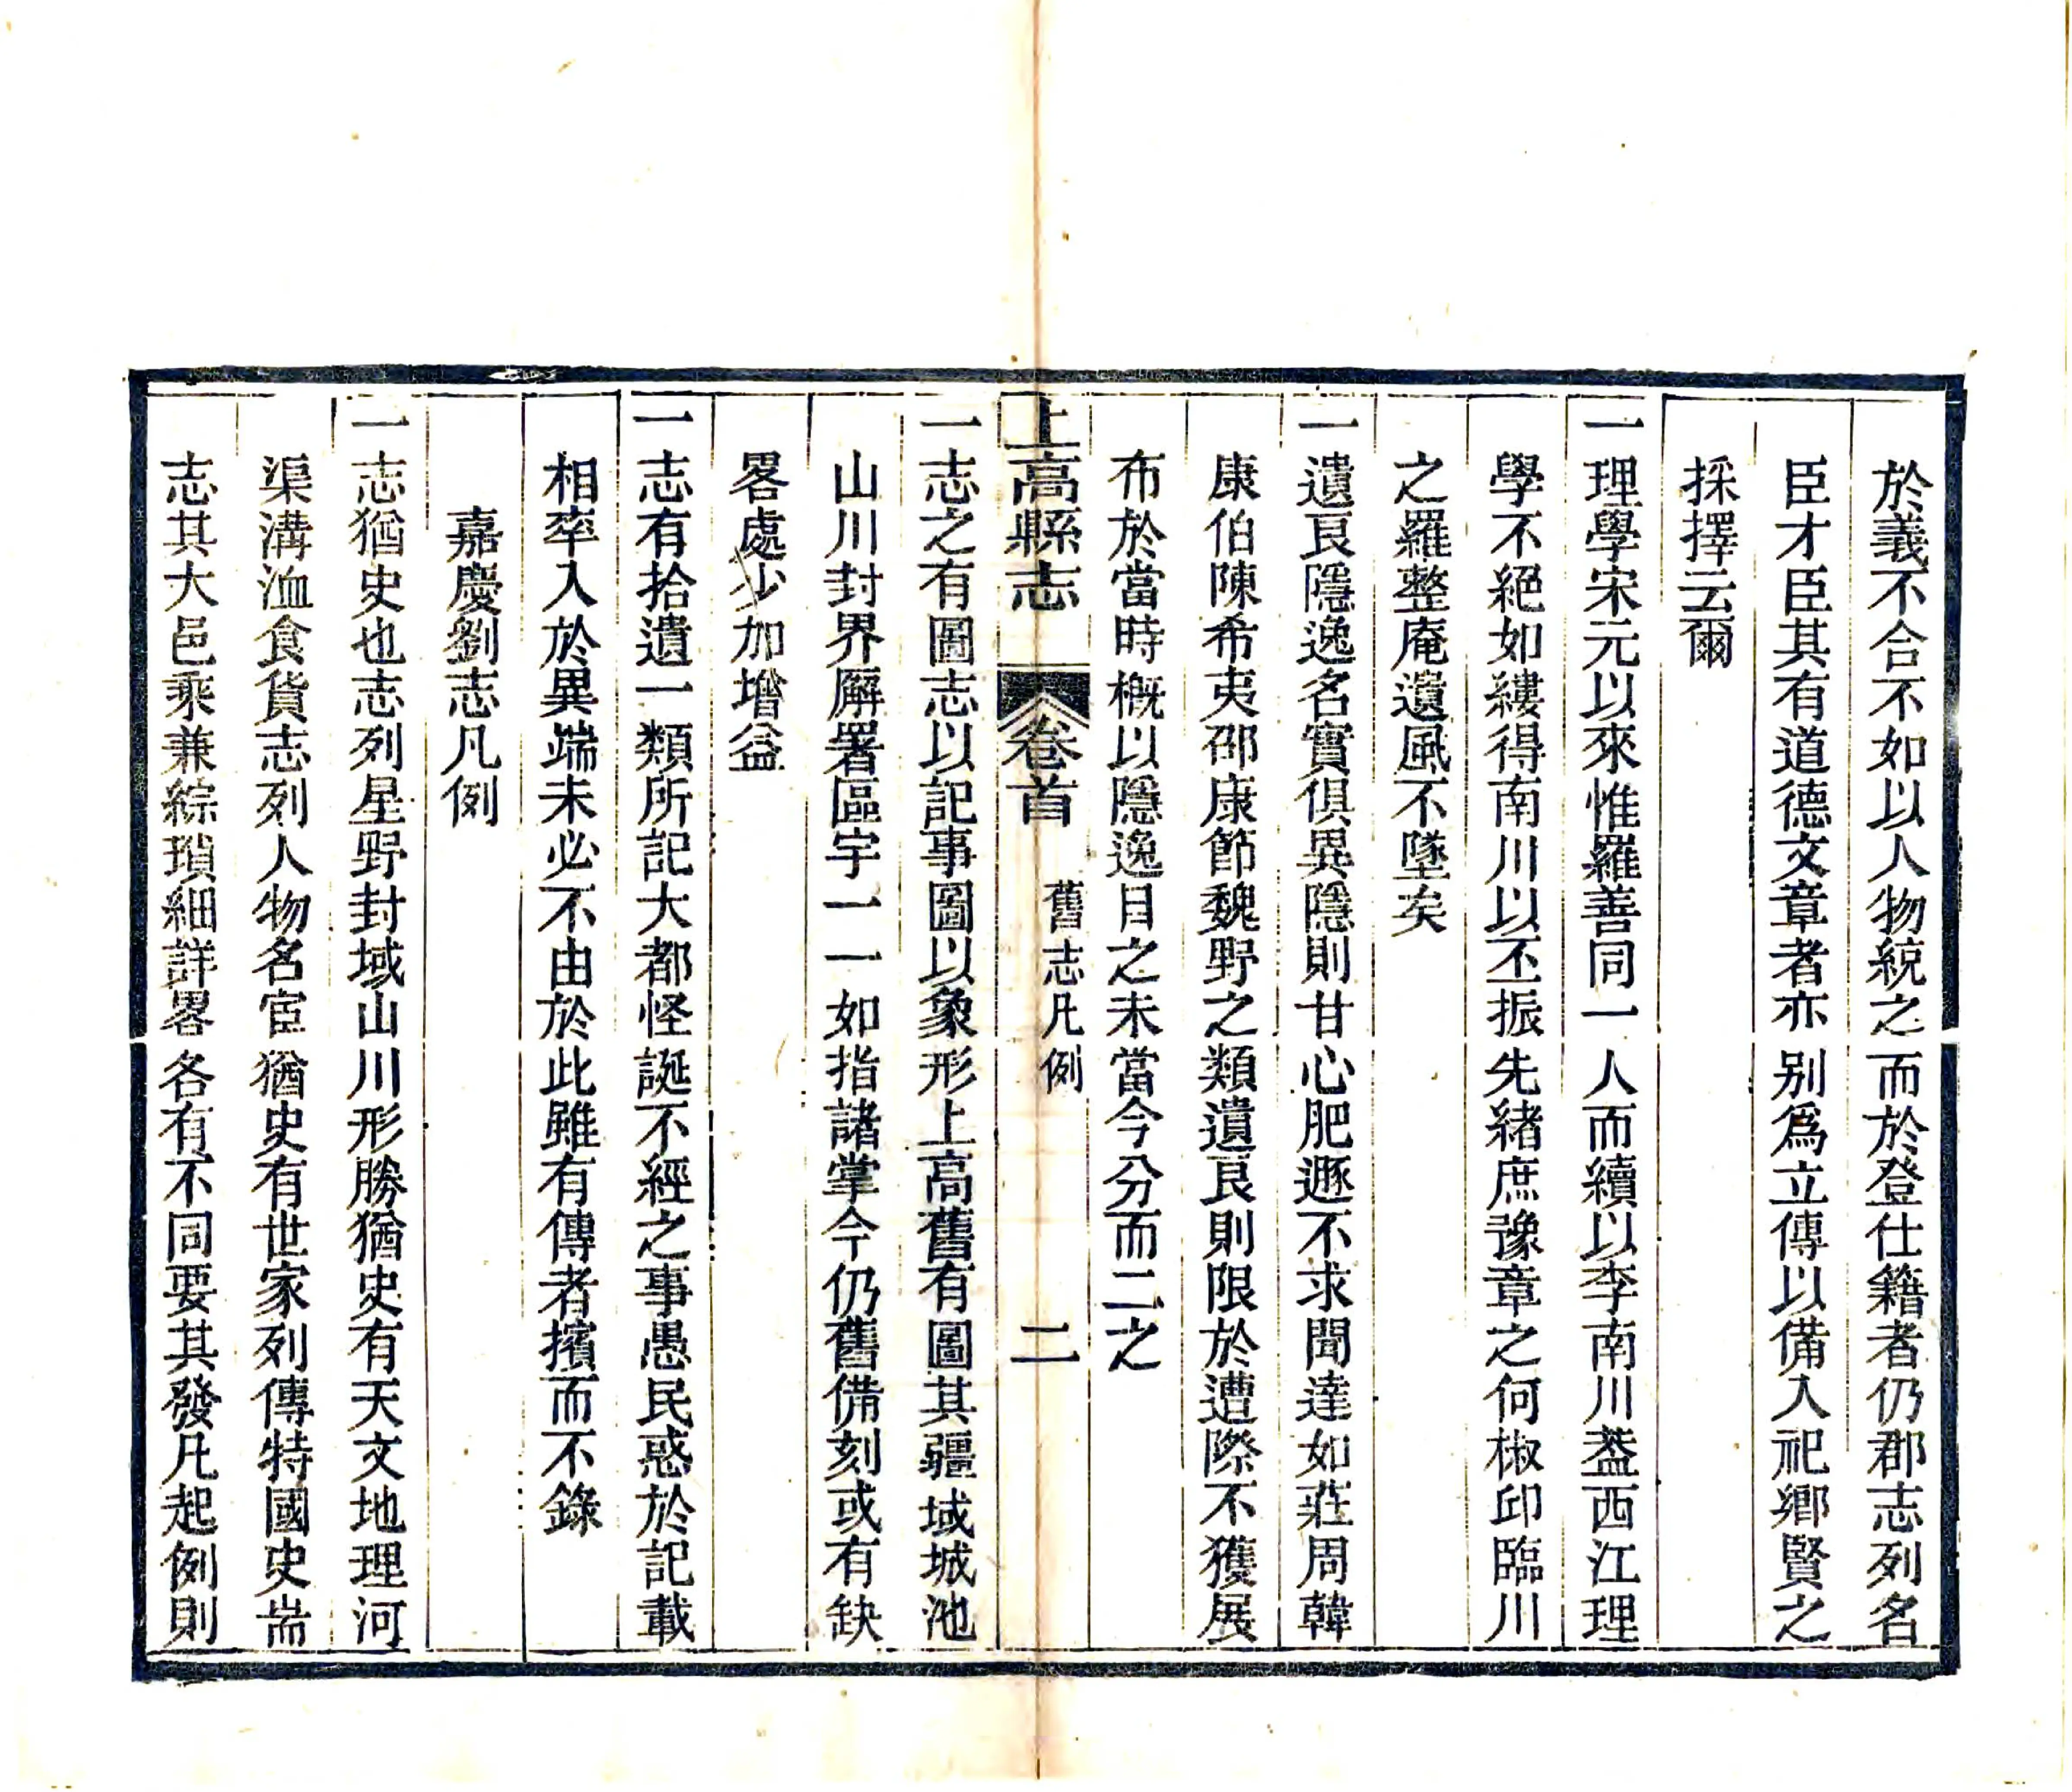 於義不合不如以人物統之而於登仕籍者仍郡志列名
臣才臣其有道德文章者亦別爲立傳以備入祀鄉賢之
採擇云爾
一理學宋元以來惟羅善同一人而續以李南川葢西江理
學不絕如縷得南川以丕振先緒庶豫章之何椒邱臨川
之羅整庵遺風不墜矣
一遺良隱逸名實俱異隱則甘心肥遯不求聞達如莊周韓
康伯陳希夷邵康節魏野之類遺良則限於遭際不獲展
布於當時槪以隱逸目之未當今分而二之
上高縣志 卷首 舊志凡例 二
一志之有圖志以記事圖以象形上高舊有圖其疆域城池
山川封界廨署區宇一一如指諸掌今仍舊備刻或有缺
畧處少加增益
一志有拾遺一類所記大都怪誕不經之事愚民惑於記載
相率入於異端未必不由於此雖有傳者擯而不錄
嘉慶劉志凡例
一志猶史也志列星野封域山川形勝猶史有天文地理河
渠溝洫食貨志列人物名宦猶史有世家列傳特國史耑
志其大邑乘兼綜瑣細詳畧各有不同要其發凡起例則